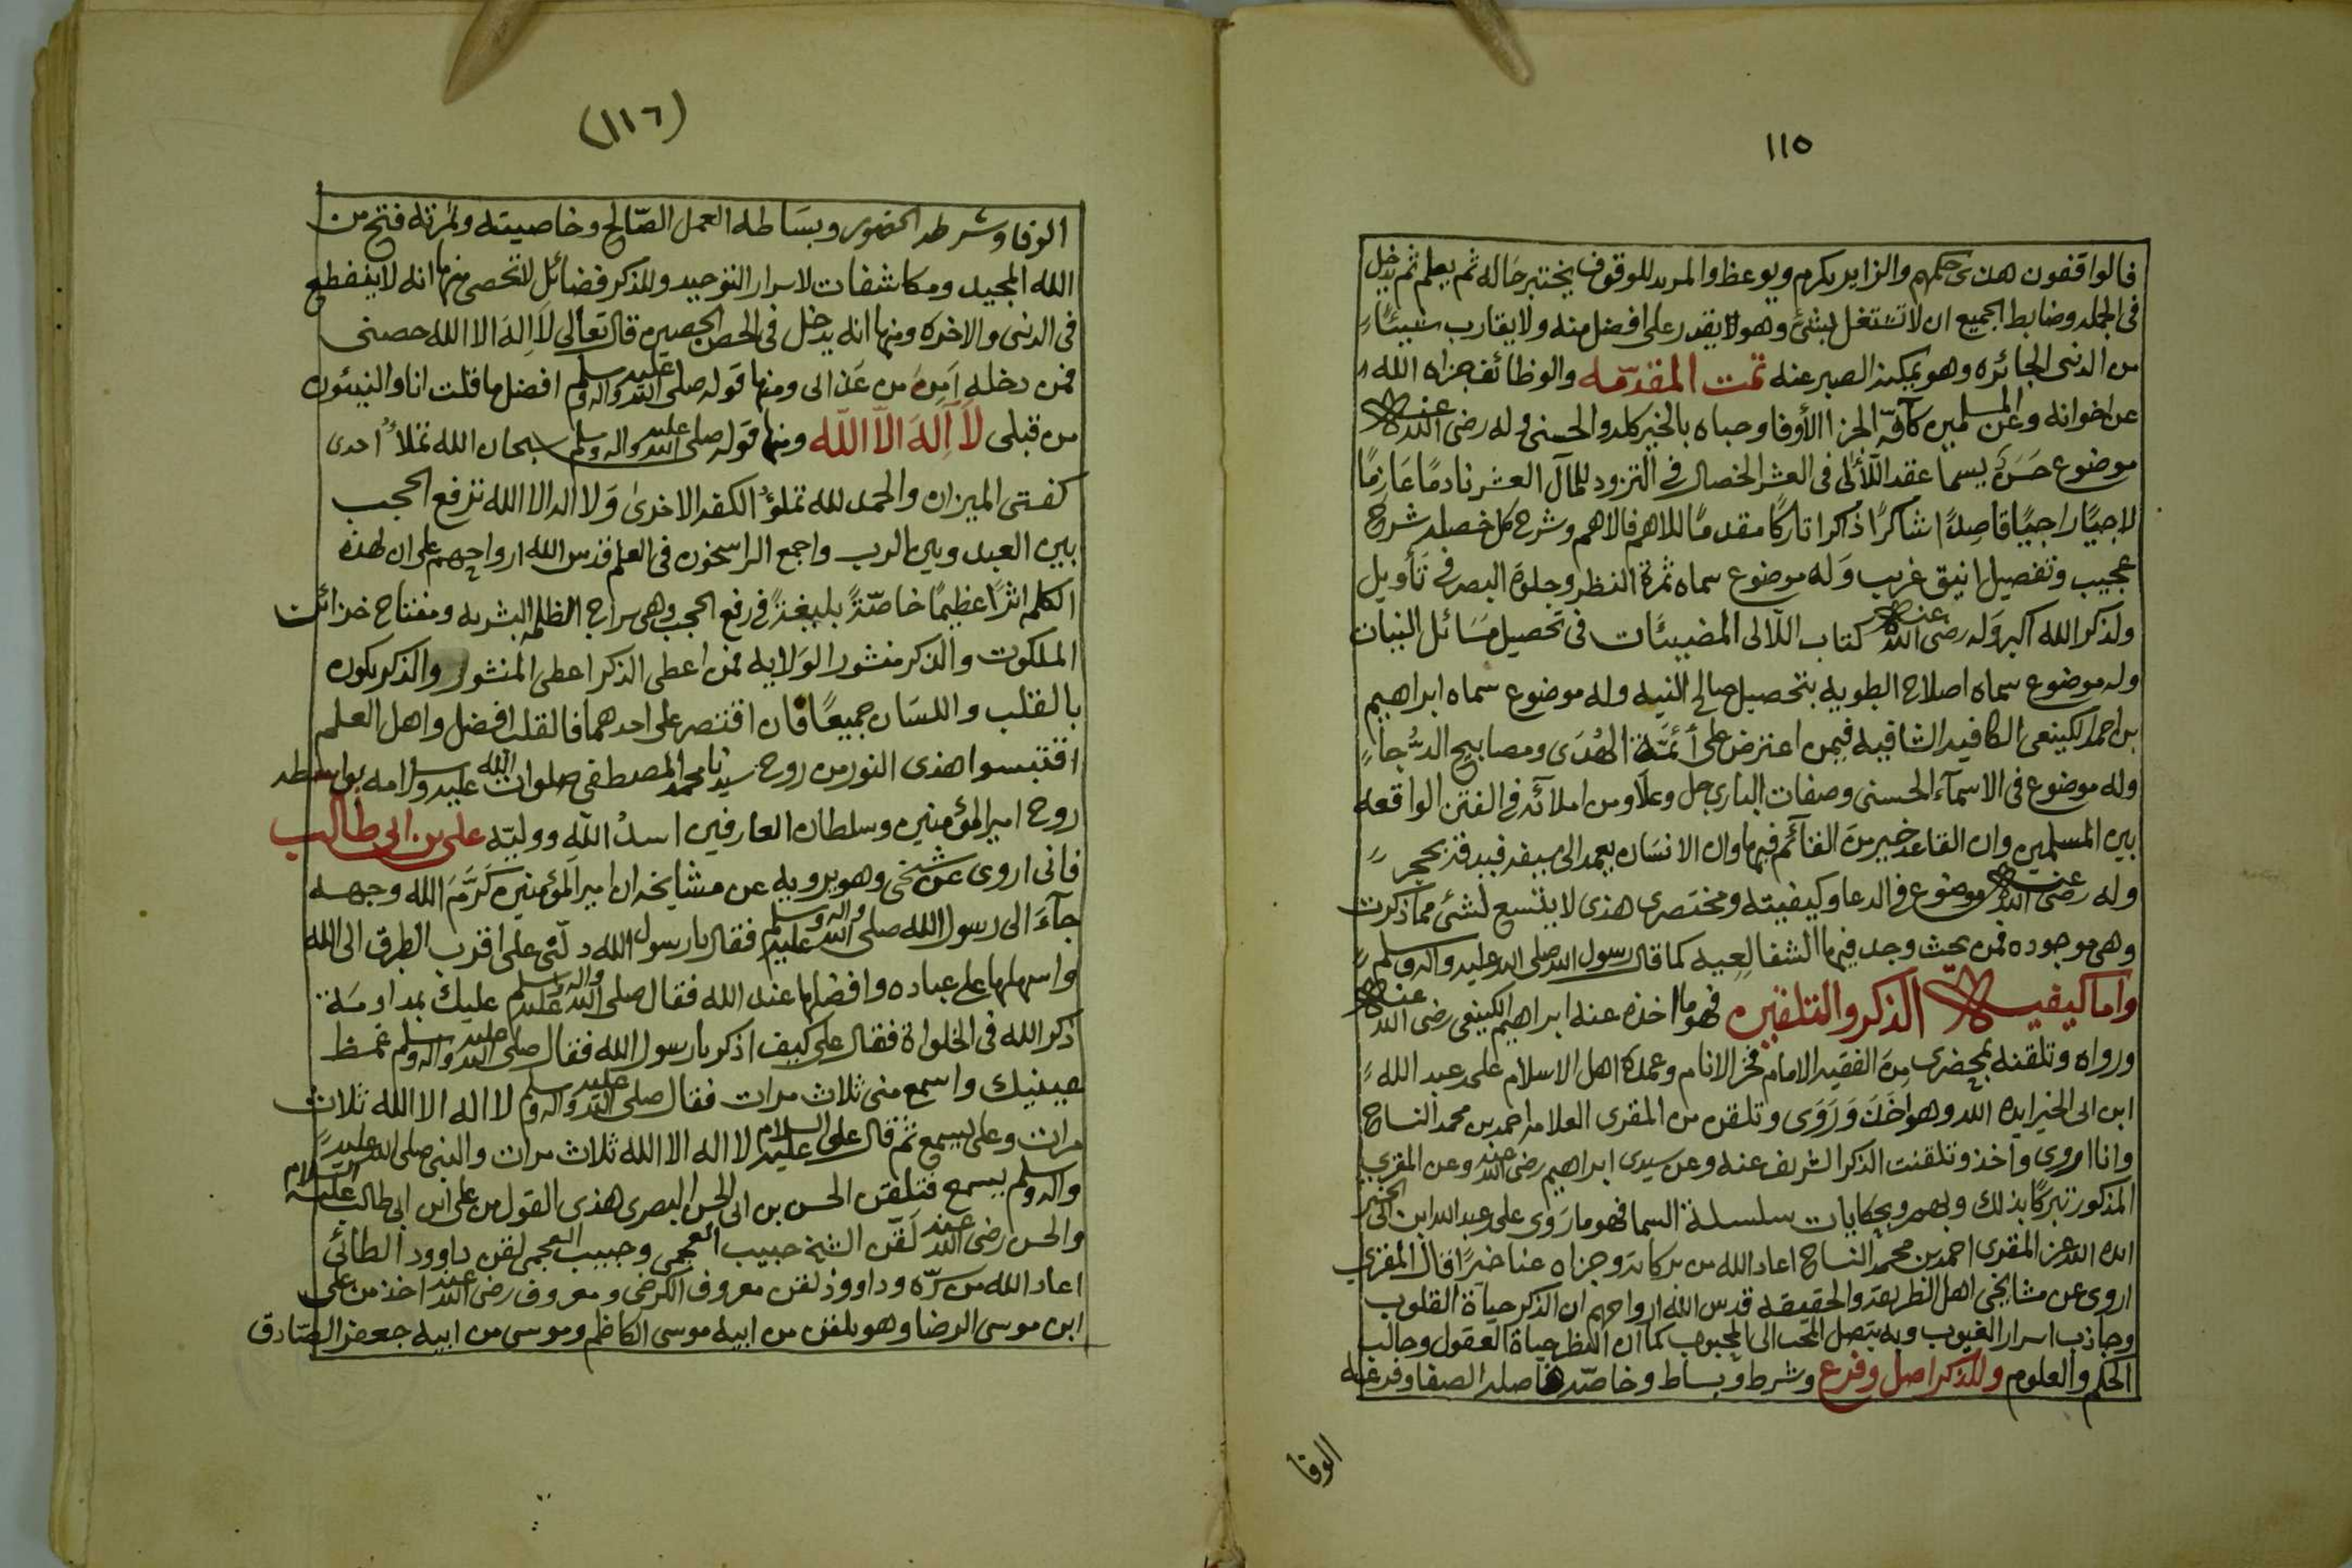 ١١٥
فالواقفون هذى حكمهم والزاير يكرم ويوعظ والمريد للوقوف يختبر حاله ثم يعلم ثم يدخل
في الجمله وضابط الجميع ان لا تشتغل بشئ وهو لا يقدر على افضل منه ولا يقارب شيئًا
من الدنى الجائره وهو يمكنه الصبر عنه تمت المقدّمه والوظائف جزاه الله
عن اخوانه وعن المسلمين كآفّه الجزا الأوفا وحباه بالخير كله والحسنى وله رضى الله عنه
موضوع حَسَن يسما عقد اللّألى في العشر الخصال في التزود للمآل العشر نادمًا عازمًا
لاجيًا راجيًا قاصدًا شاكرًا ذاكرا تاركًا مقدمًا للاهم فالاهم وشرح كل خصله شرح
عجيب وتفصيل انيق غريب وَله موضوع سماه ثمرة النظر وجلوة البصر في تأويل
ولذكر الله اكبر وَله رضى الله عنه كتاب اللّالى المضييئات في تحصيل مسَائل النيات
وله موضوع سماه اصلاح الطويه بتحصيل صالح النيه وله موضوع سماه ابراهيم
بن احمد الكينعى الكافيه الشافيه فيمن اعترض على أئمّة الهُدَى ومصابيح الدُّجا
وله موضوع في الاسمآء الحسنى وصفات الباري جل وعلا ومن املآئه في الفتن الواقعه
بين المسلمين وان القاعد خير من القآئم فيها وان الانسان يعمد الى سيفه فيدقه بحجر
وله رضى الله عنه موضوع في الدعا وكيفيته ومختصرى هذى لا يتسع لشئ مما ذكرت
وهى موجوده فمن بحث وجد فيها الشفا لعيه كما قال رسول الله صلى الله عليه واله وسلم
واما كيفيـة الذكر والتلقين فهو ما اخذه عنه ابراهيم الكينعى رضى الله عنه
ورواه وتلقنه بمحضرى مِنَ الفقيه الامام فخر الانام وعمدة اهل الاسلام على عبد الله
ابن ابى الخير ايده الله وهو اخَذَ وَرَوَى وتلقن من المقرى العلامه احمد بن محمد النساج
وانا اروى وآخذ وتلقنت الذكر الشريف عنه وعن سيدى ابراهيم رضى الله عنه وعن المقري
المذكور تبركًا بذلك وبهم وبحكايات سلسلة السما فهو ما رَوَى على عبد الله ابن ابى الخير
ايده الله عن المقرى احمد بن محمد النساج اعاد الله من بركاته وجزاه عنا خيرًا قال المقري
اروى عن مشايخى اهل الطريقه والحقيقه قدس الله ارواحهم ان الذكر حياة القلوب
وجاذب اسرار الغيوب وبه يتصل المحب الى المحبوب كما ان النظر حياة العقول وجالب
الحكم والعلوم وللذكر اصل وفرع وشرط وبساط وخاصّه فاصله الصفا وفرعه
الوفا
(١١٦)
الوفا وشرطه الحضور وبسَاطه العمل الصّالح وخاصيته وثمرته فتح من
الله المجيد ومكاشفات لاسرار التوحيد وللذكر فضائل لا تحصى منها انه لا ينقطع
في الدنى والاخره ومنها انه يدخل في الحصن الحصين قال تعالى لاَ إلهَ الا الله حصنى
فمن دخله اَمِنَ من عَذابى ومنها قوله صلى الله عليه واله وسلم افضل ما قلت انا والنبيئون
من قبلى لاَ اَلَهَ الاَّ اللَّه ومنها قوله صلى الله عليه واله وسلم سبحان الله تملأُ احدى
كفتى الميزان والحمد لله تملؤ الكفه الاخرى وَلا اله الا الله ترفع الحجب
بين العبد وبين الرب واجمع الراسخون في العلم قدس الله ارواحهم على ان لهذه
الكلمه اثرًا عظيمًا خاصّةً بليغةً في رفع الحجب وهى سراج الظلمه البشريه ومفتاح خزائن
الملكوت والذكر منشور الوَلايه فمن اعطى الذكر اعطى المنشور والذكر يكون
بالقلب واللسَان جميعًا فان اقتصر على احدهما فالقلب افضل واهل العلم
اقتبسوا هذى النور من روح سيدنا محمد المصطفى صلوات الله عليه وسلامه بواسطه
روح امير المؤمنين وسلطان العارفين اسدُ اللّهِ ووليّه على بن ابى طالب
فانى اروى عن شيخى وهو يرويه عن مشايخه ان امير المؤمنين كَرَّمَ الله وجهه
جآءَ الى رسول الله صلى الله عليه واله وسلم فقال يا رسول الله دلّنى على اقرب الطرق الى الله
واسهلها على عباده وافضلها عند الله فقال صلى الله عليه واله وسلم عليك بمداومَة
ذكر الله في الخلواة فقال على كيف اذكر يا رسول الله فقال صلى الله عليه واله وسلم غمظ
عينيك واسمع منى ثلاث مرات فقال صلى الله عليه واله وسلم لا اله الا الله ثلاث
مرات وعلى يسمع ثم قال على عليه السلام لا اله الا الله ثلاث مرات والنبى صلى الله عليه
واله وسلم يسمع فتلقن الحسن بن ابى الحسن البصرى هذى القول من على ابن ابى طالب عليه السلام
والحسن رضى الله عنه لَقّن الشيخ حبيب العجمى وحبيب العجمى لقن داوود الطائى
اعاد الله من سرّه وداوود لقن معروف الكرخى ومعروف رضى الله عنه اخذ من على
ابن موسى الرضا وهو تلقن من ابيه موسى الكاظم وموسى من ابيه جعفر الصّادق